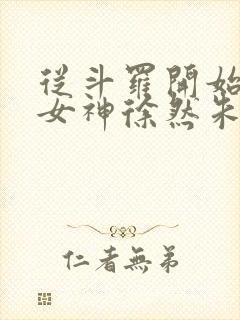 從斗羅開始
女神徐然朱
仁者無弟